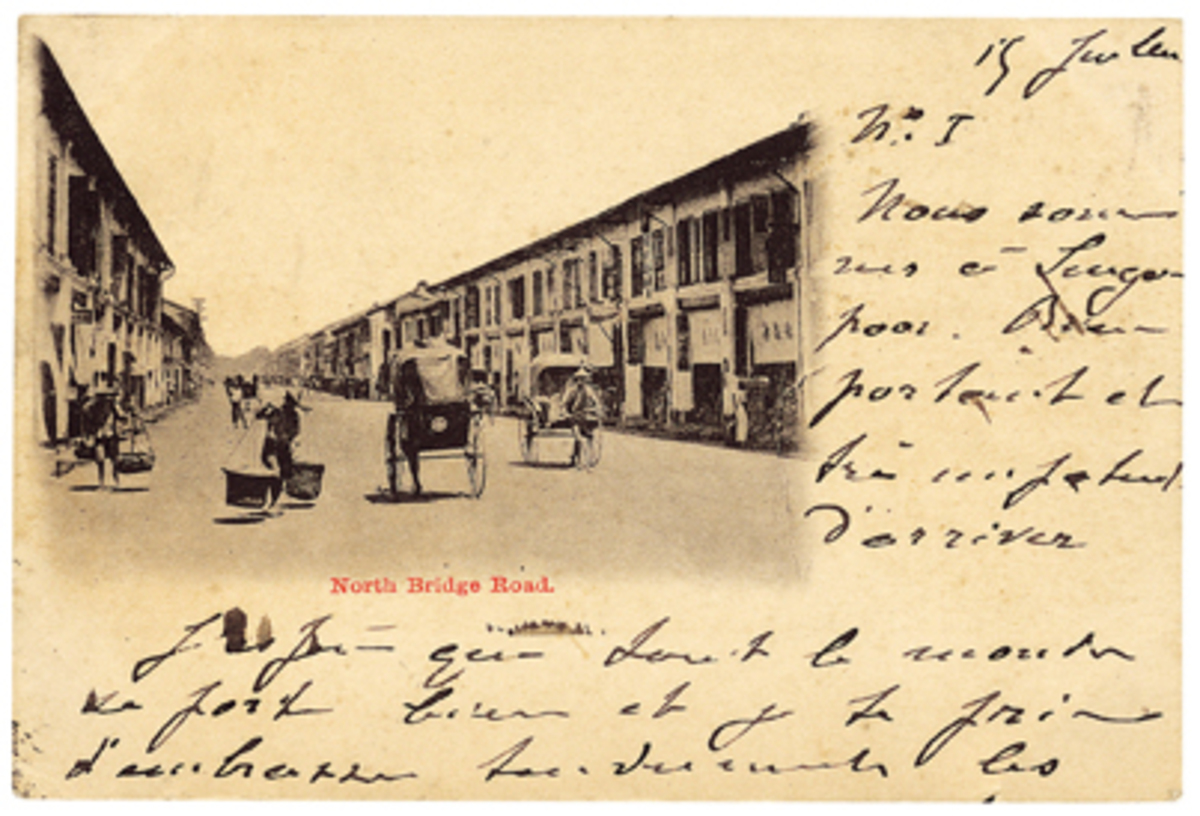 15 Juillet
No. I
Nous som
mes à Singa
poor. Bien
portant et
très impatient
d'arriver
North Bridge Road.
J'espère que tout le monde
se porte bien et je te prie
d'embrasser tendrement les